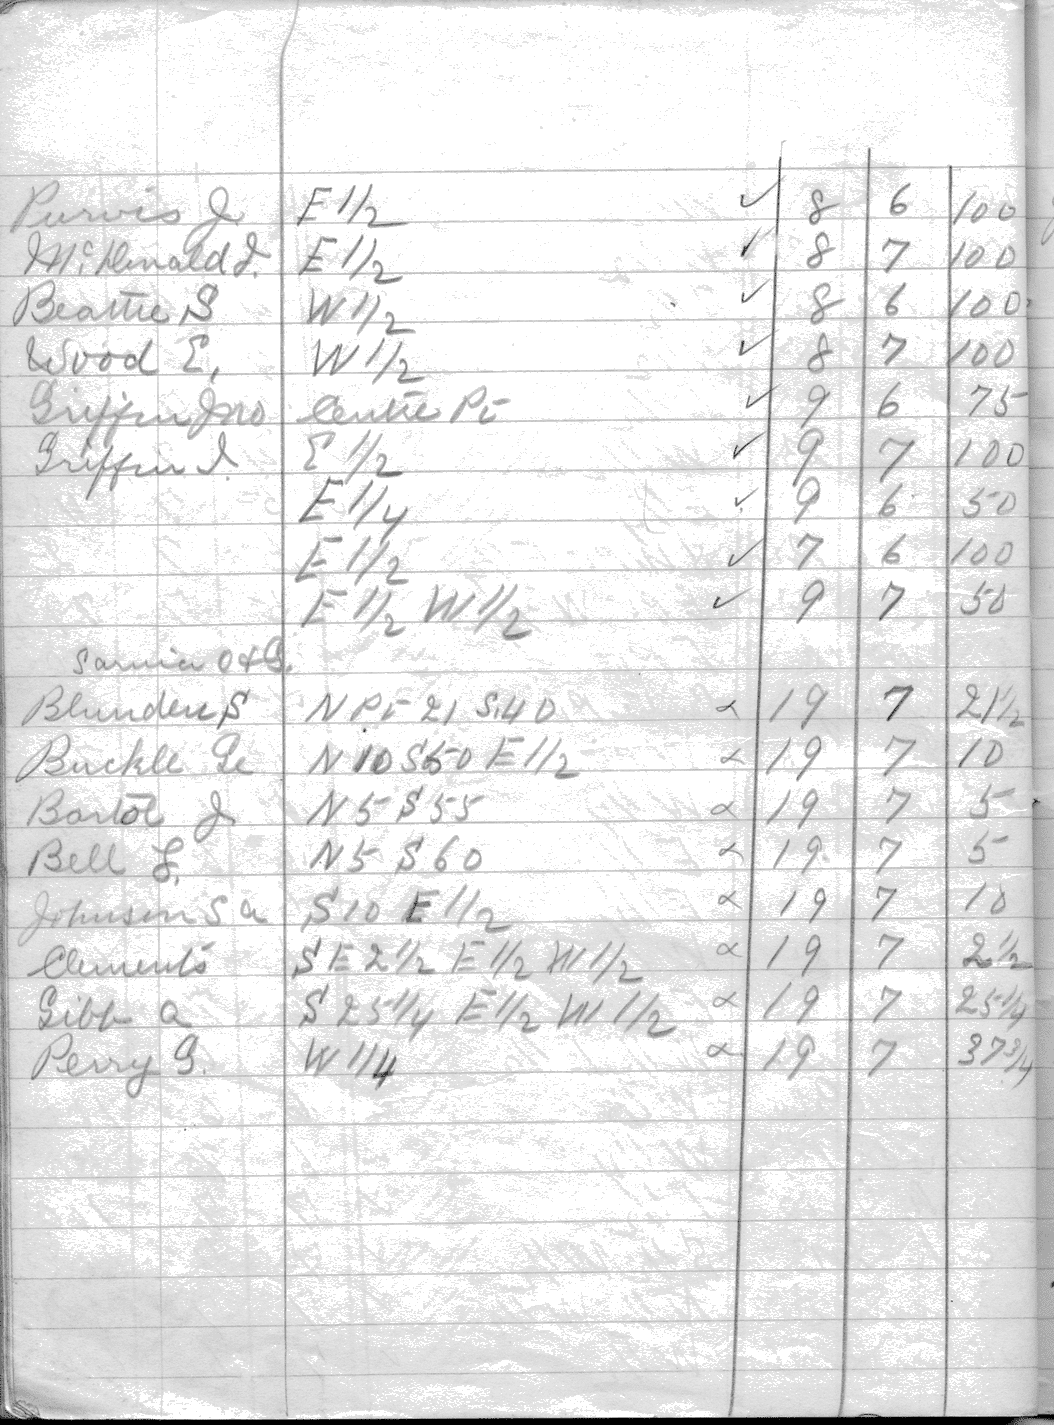 Purvis J E 1/2 ✓ 8 6 100
McDonald J. E 1/2 ✓ 8 7 100
Beattie S W 1/2 ✓ 8 6 100
Wood E, W 1/2 ✓ 8 7 100
Griffin Jno Centre Pt ✓ 9 6 75
Griffin J. E 1/2 ✓ 9 7 100
E 1/4 ✓ 9 6 50
E 1/2 ✓ 7 6 100
E 1/2 W 1/2 ✓ 9 7 50
Sarnia O & G.
Blunden S N Pt 21 S 40 × 19 7 21 1/2
Buckle Ge N 10 S 50 E 1/2 × 19 7 10
J N 5 S 55 × 19 7 5
Bell N 5 S 60 × 19 7 5
Johnson S a S 10 E 1/2 × 19 7 10
Clements S E 2 1/2 E 1/2 W 1/2 × 19 7 2 1/2
Gibb a S 25 1/4 E 1/2 W 1/2 × 19 7 25 1/4
Perry G. W 1/4 × 19 7 37 3/4